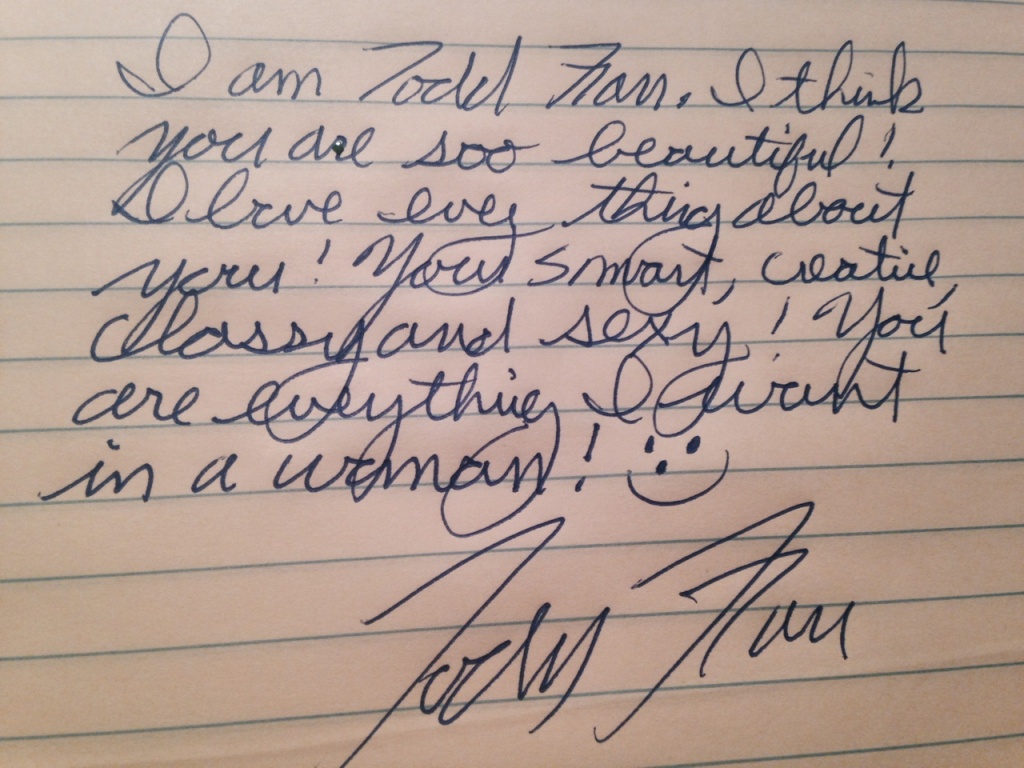 I am Todd Farr. I think
you are soo beautiful!
I love every thing about
you! Your smart, creative,
classy and sexy! You
are everything I want
in a woman!
Todd Farr